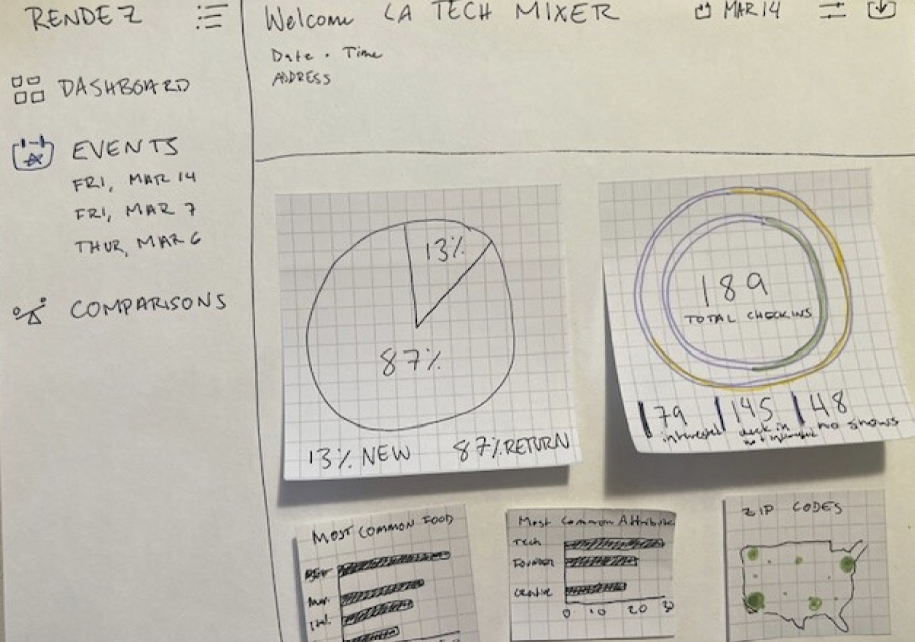 RENDEZ
DASHBOARD
EVENTS
FRI, MAR 14
FRI, MAR 7
THUR, MAR 6
COMPARISONS
Welcome LA TECH MIXER
MAR 14
Date · Time
ADDRESS
13%
87%
13% NEW 87% RETURN
189
TOTAL CHECKINS
79 145 48
interested check in no shows
MOST COMMON FOOD
Mex.
Ital.
Most Common Attribute
Tech
Founder
0 10 20 30
ZIP CODES